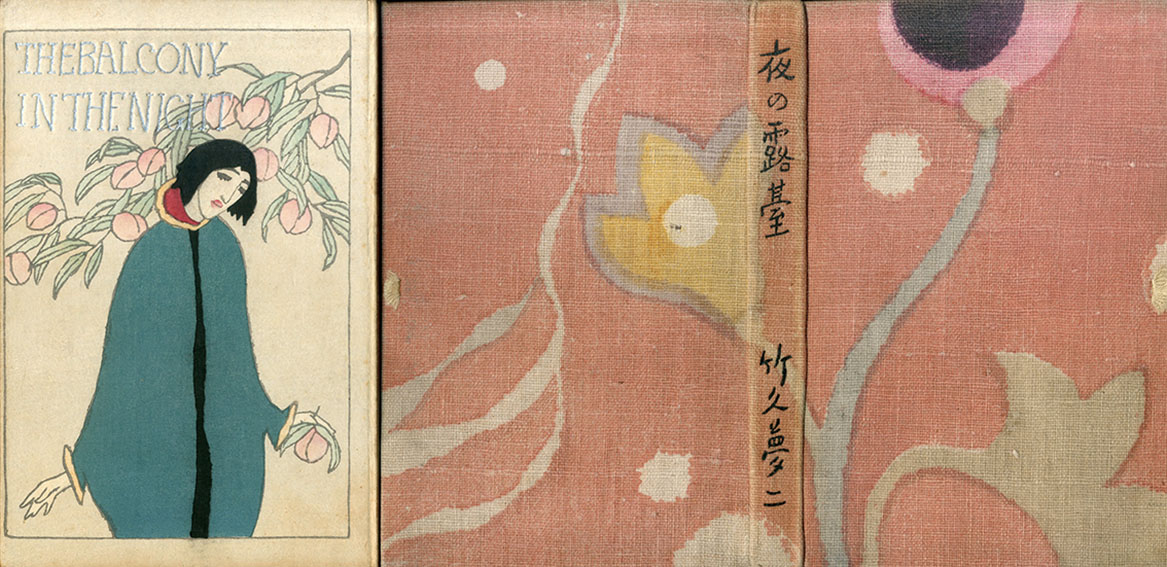 THE BALCONY
IN THE NIGHT
夜の露臺
竹久夢二